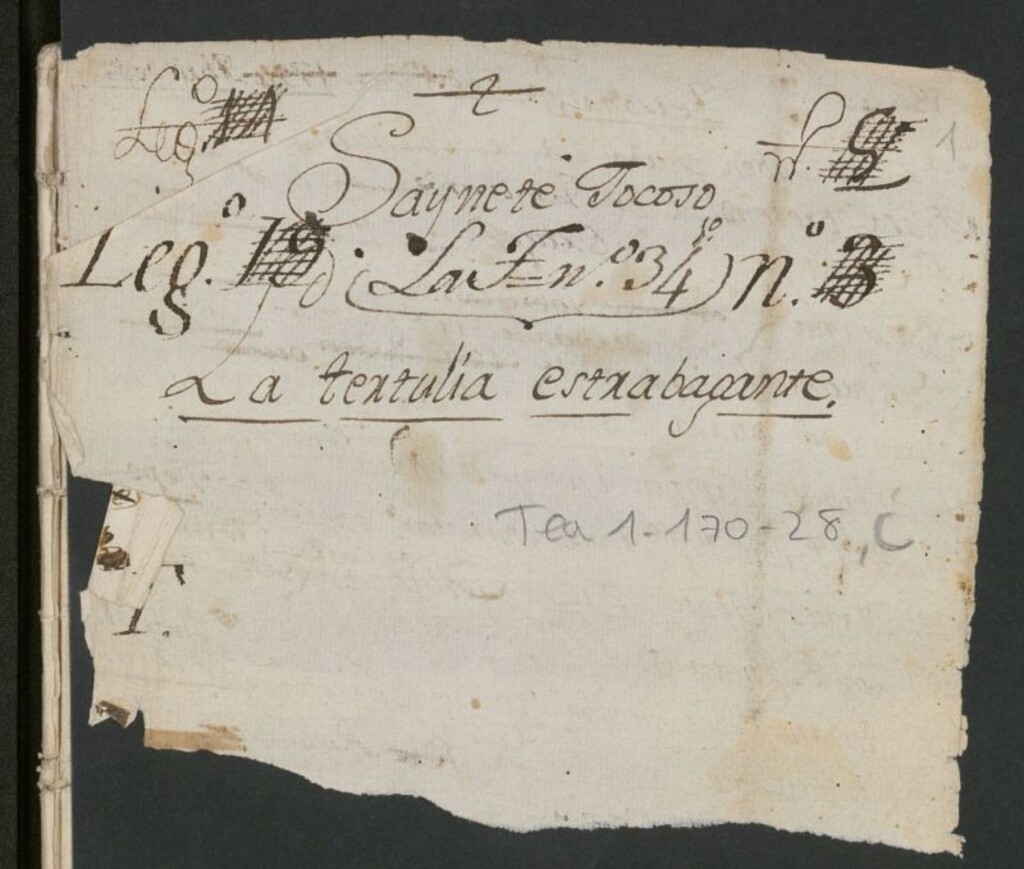 2
Leg.º
n.º
1
Saynete Jocoso
Leg.º 19. La F=n.º34 n.º 3
La tertulia estrabagante.
Tea 1-170-28, C
1.